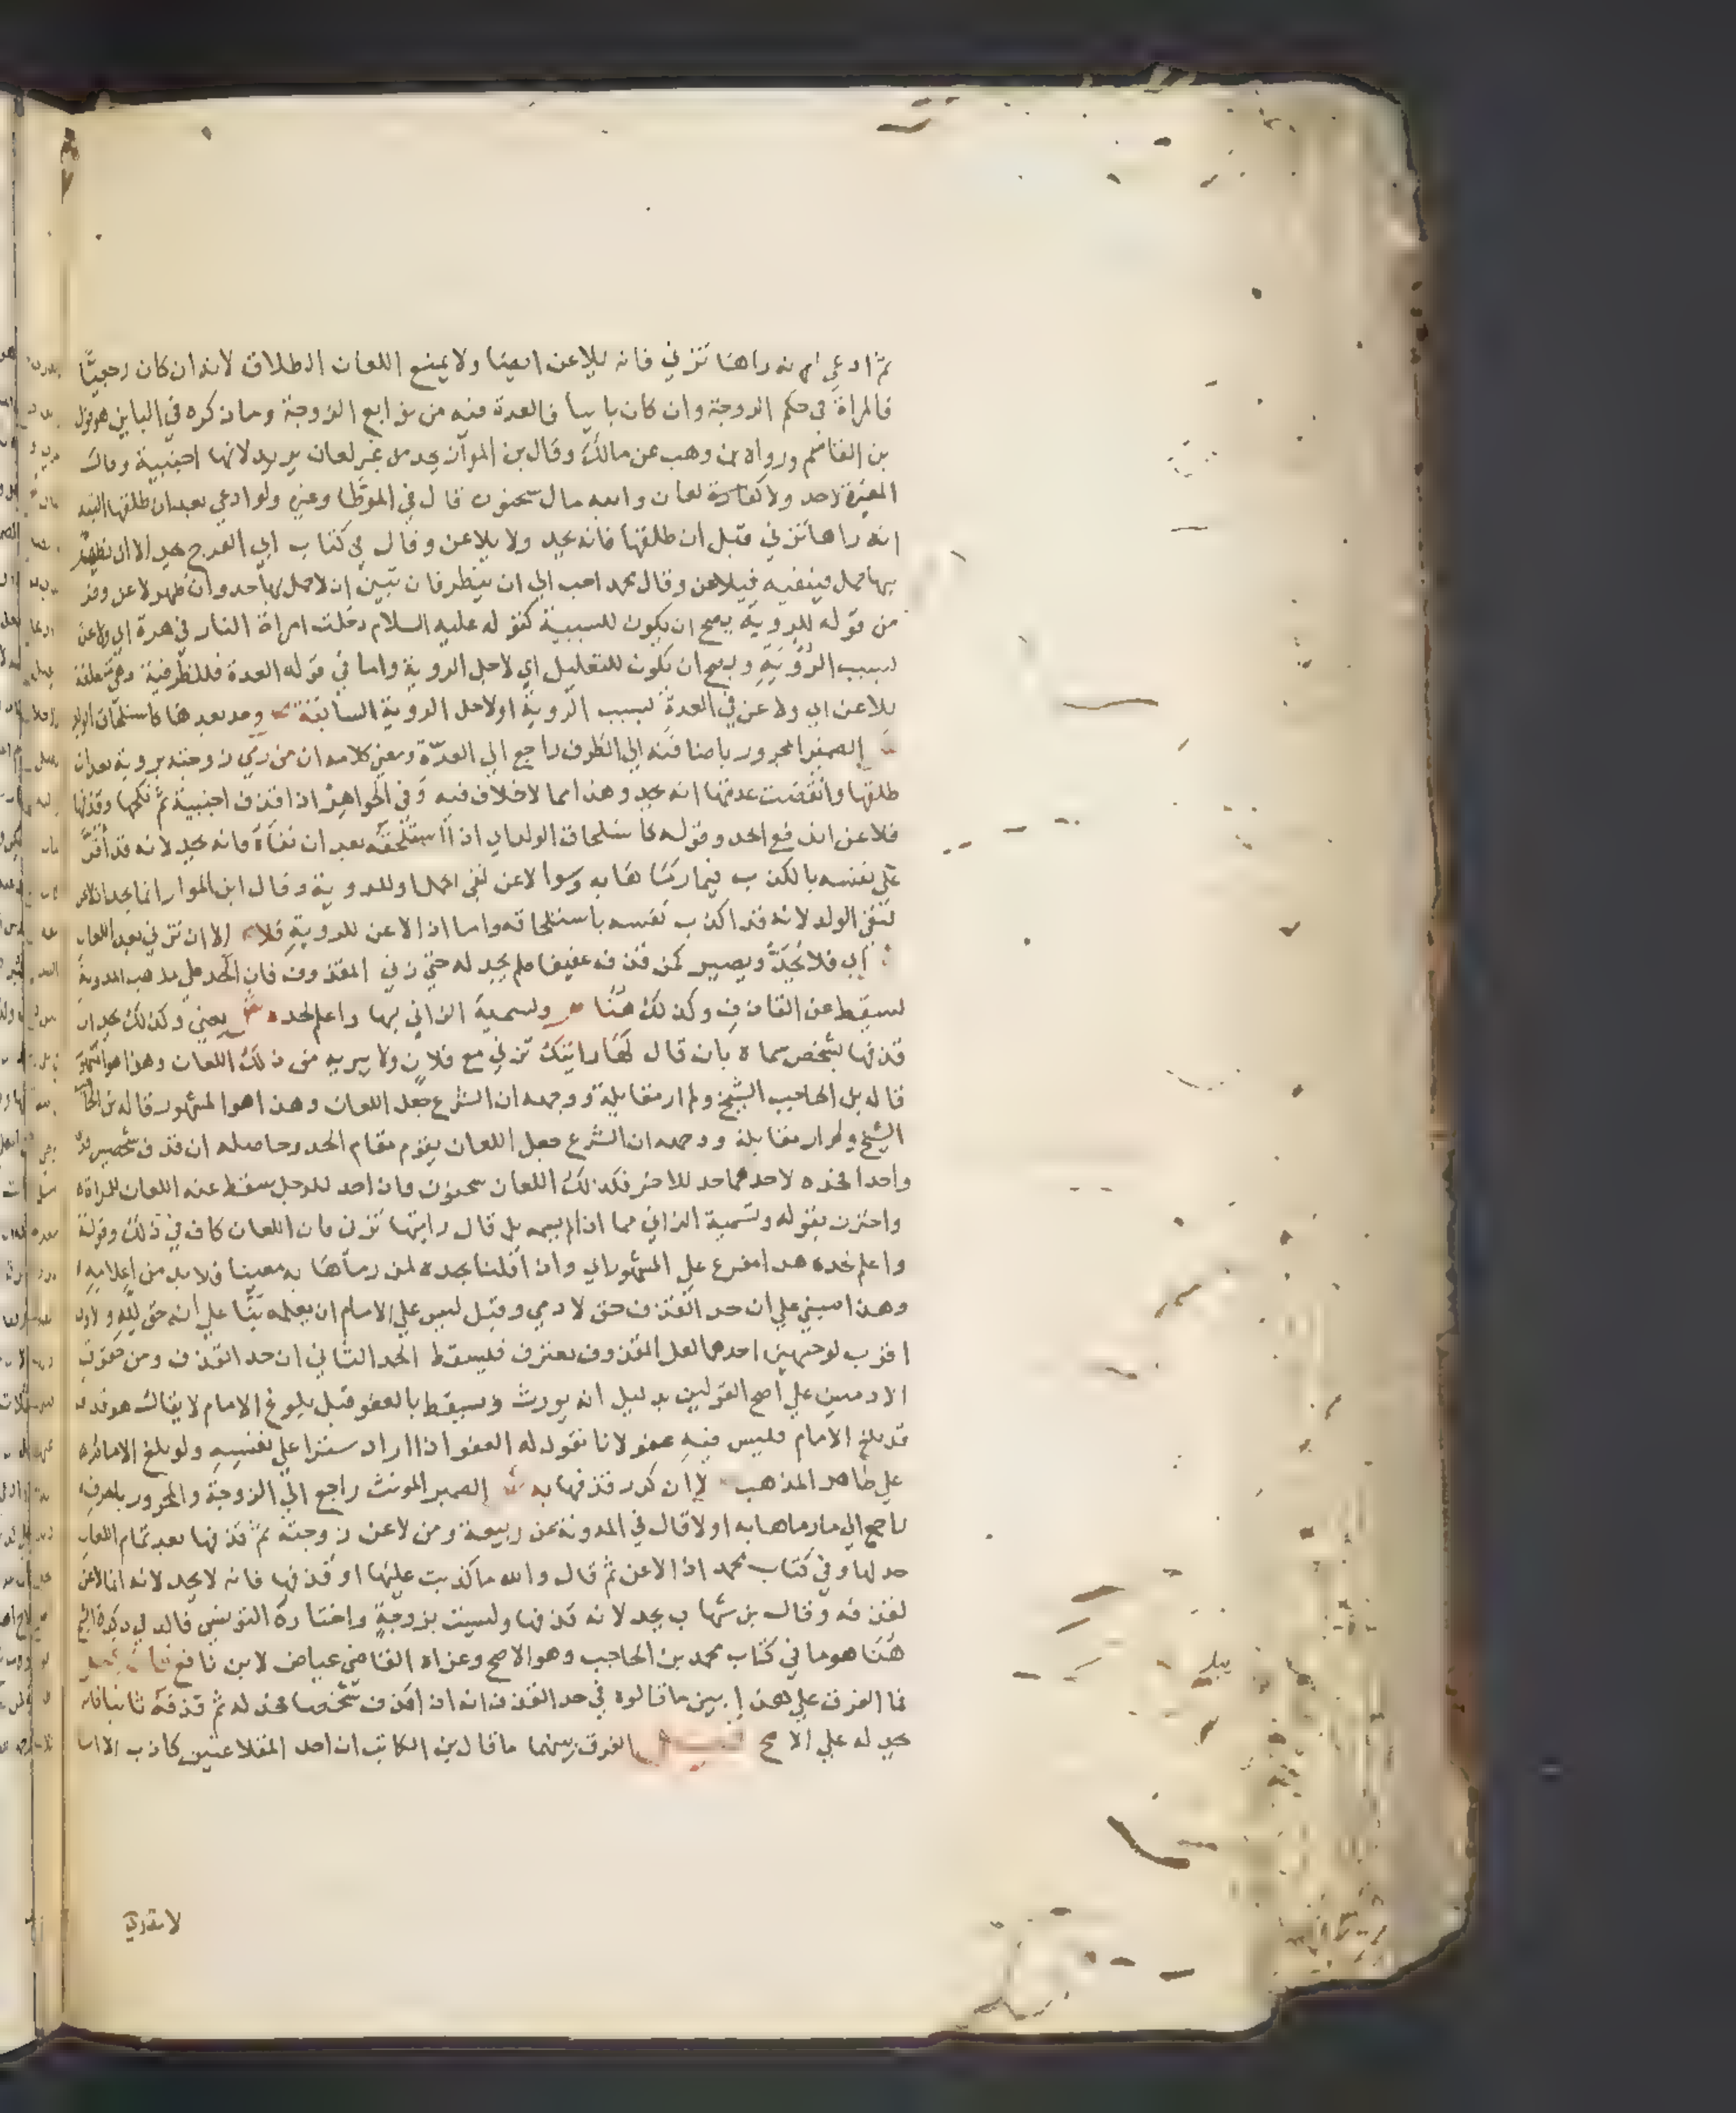 ثم ادعي انه راها تزني فانه يلاعن ايضا ولا يمنع اللعان الطلاق لانه ان كان رجعيا
فالمراة في حكم الزوجة وان كان باينا فالعدة فيه من توابع الزوجة وما ذكره في الباين هو قول
بن القاسم ورواه بن وهب عن مالك وقال بن المواز يحد من غير لعان يريد لانها اجنبية وقال
المغيرة لاحد ولا لعان سحنون قال في الموطا وغيره ولو ادعي بعد ان طلقها البتة
انه راها تزني قبل ان طلقها فانه يحد ولا يلاعن وقال في كتاب ابي الفرج يحد الا ان يظهر
بها حمل فينفيه فيلاعن وقال محمد احب الي ان ينتظر فان تبين ان لا حمل بها حد وان ظهر لاعن
من قوله للروية يصح ان يكون للسببية كقوله عليه السلام دخلت امراة النار في هرة اي ولاعن
لسبب الروية ويصح ان تكون للتعليل اي لاجل الروية واما في قوله العدة فللظرفية وهي متعلقة
بلاعن اي ولاعن في العدة لسبب الروية او لاجل الروية السابقة وحد بعدها كاستلحاق الولد
الضمير المجرور باضافته الي الظرف راجع الي العدة ومعني كلامه ان من رمي زوجته بروية بعد ان
طلقها وانقضت عدتها انه يحد وهذا مما لا خلاف فيه وفي الجواهر اذا قذف اجنبية ثم نكحها وقذفها
فلاعن اندفع الحد وقوله كاستلحاق الولد اي اذا استلحقه بعد ان نفاه فانه يحد لانه قد اقر
علي نفسه بالكذب فيما رماها به وسوا لاعن لنفي الحمل او للروية وقال ابن المواز انما يحد ان لاعن
لنفي الولد لانه قد اكذب نفسه باستلحاقه واما اذا لاعن للروية فلا الا ان تزني بعد اللعان
اي فلا يحد ويصير كمن قذف عفيفا فلم يحد له حتي زني المقذوف فان الحد علي مذهب المدونة
يسقط عن القاذف وكذلك هنا وتسمية الزاني بها واعلم لحده يعني وكذلك يحد ان
قذفها بشخص سماه بان قال لها رايتك تزني مع فلان ولا يبريه من ذلك اللعان وهذا هو المشهور
قاله بل الحاجب الشيخ ولم ار مقابلة ووجهه ان الشرع جعل اللعان وهذا هو المشهور قاله بن الحاجب
الشيخ ولم ار مقابلة ووجهه ان الشرع جعل اللعان يقوم مقام الحد وحاصله ان قذف شخصين
واحدا فحده لاحدهما حد للاخر فكذلك اللعان سحنون فان احد للرجل سقط عنه اللعان للمراة
واحترز بقوله وتسمية الزاني مما اذا لم يسمه بل قال رايتها تزني فان اللعان كاف في ذلك وقوله
واعلم لحده هذا مفرع علي المشهور اي واذا قلنا بحده لمن رماها به معينا فلا بد من اعلامه
وهذا مبني علي ان حد القذف حق لادمي وقيل ليس علي الامام ان يعلمه بنا علي انه حق لله والاول
اقرب لوجهين احدهما لعل المقذوف يعترف فيسقط الحد الثاني ان حد القذف من حقوق
الادميين علي اصح القولين بدليل انه يورث ويسقط بالعفو قبل بلوغ الامام لا يقال هو قد
قد بلغ الامام فليس فيه عفو لانا نقول له العفو اذا اراد سترا علي نفسه ولو بلغ الامام
علي ظاهر المذهب لا ان كرر قذفها به الضمير المونث راجع الي الزوجة والمجرور بالحرف
راجع الي ما رماها به اولا قال في المدونة عن ربيعة ومن لاعن زوجته ثم قذفها بعد تمام اللعان
حد لها وفي كتاب محمد اذا لاعن ثم قال والله ما كذبت عليها او قذفها فانه لا يحد لانه انما لاعن
لقذفه وقال بن شهاب يحد لانه قذفها وليست بزوجة واختاره التونسي
هنا هو ما في كتاب محمد بن الحاجب وهو الاصح وعزاه القاضي عياض لابن نافع
فما الفرق علي هذا بين ما قالوه في حد القذف انه اذا قذف شخصا فحد له ثم قذفه ثانيا فانه
يحد له علي الاصح الفرق بينهما ما قال بن الكاتب ان احد المتلاعنين كاذب الا انا
لا ندري